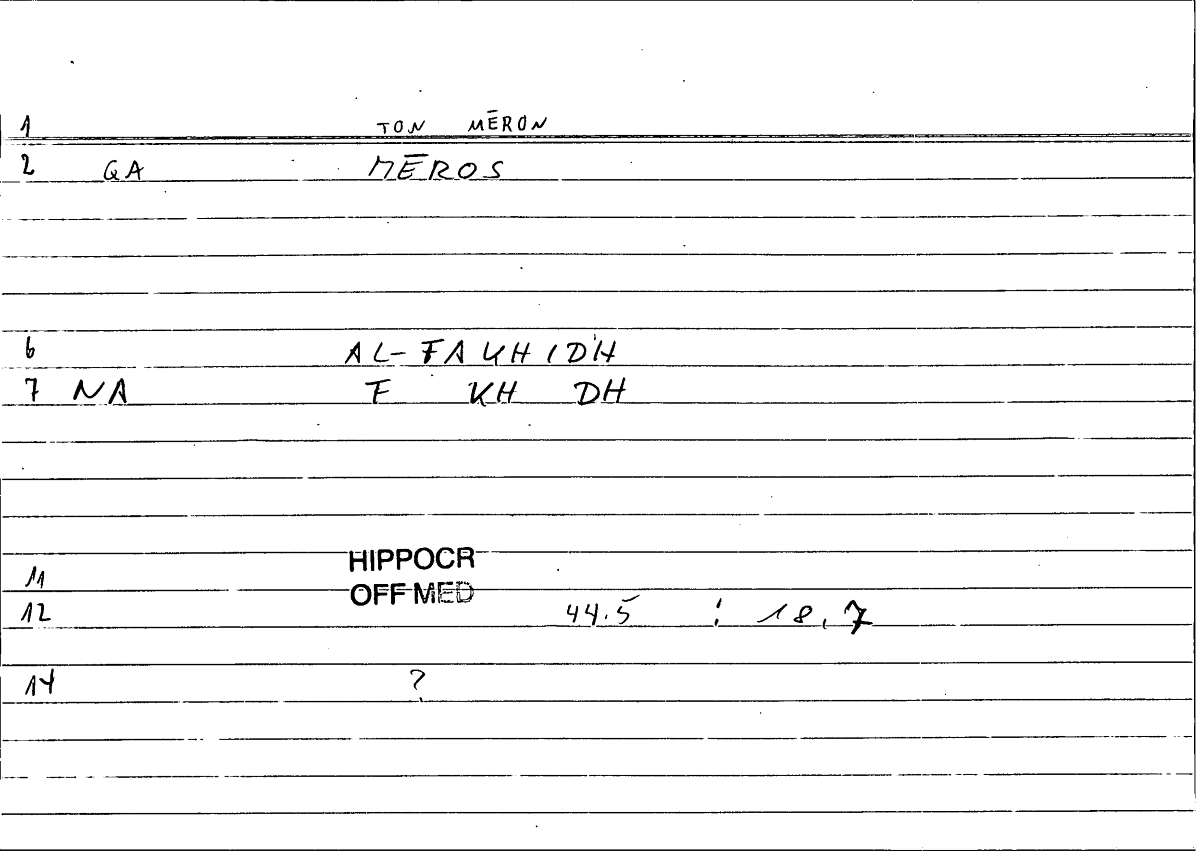 1 TON MĒRON
2 GA MĒROS
6 AL-FAKHIDH
7 NA F KH DH
11 HIPPOCR
OFF MED
12 44.5 : 18,7
14 ?